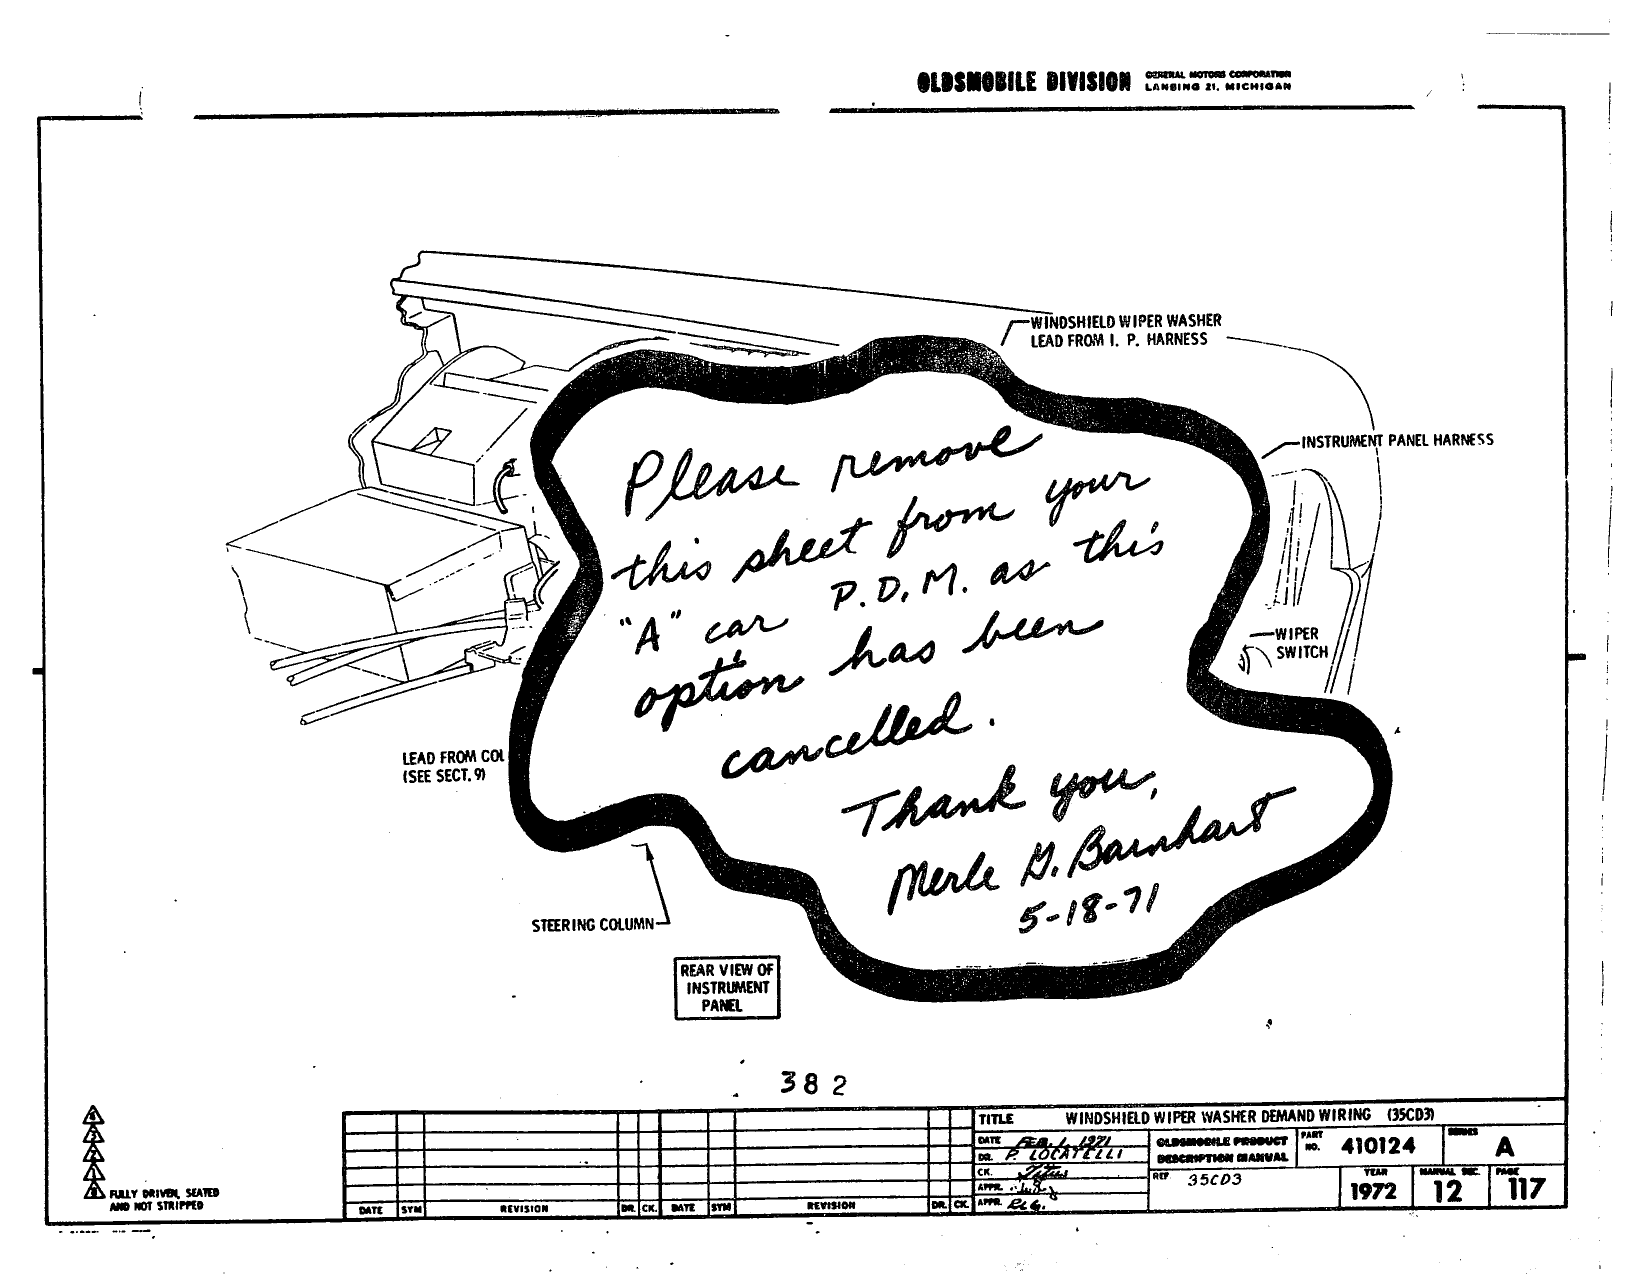 OLDSMOBILE DIVISION
GENERAL MOTORS CORPORATION
LANSING 21, MICHIGAN
WINDSHIELD WIPER WASHER
LEAD FROM I. P. HARNESS
INSTRUMENT PANEL HARNESS
Please remove
this sheet from your
"A" car P.D.M. as this
option has been
cancelled.
Thank you,
Merle G. Barnhart
5-18-71
WIPER
SWITCH
LEAD FROM COL
(SEE SECT. 9)
STEERING COLUMN
REAR VIEW OF
INSTRUMENT
PANEL
382
4
3
2
1
0 FULLY DRIVEN, SEATED
AND NOT STRIPPED
DATE SYM REVISION DR. CK. DATE SYM REVISION DR. CK.
TITLE WINDSHIELD WIPER WASHER DEMAND WIRING (35CD3)
DATE FEB. 1, 1971
DR. P. LOCATELLI
CK.
APPR.
APPR.
OLDSMOBILE PRODUCT
DESCRIPTION MANUAL
REF 35CD3
PART NO. 410124
SERIES A
YEAR 1972
MANUAL SEC. 12
PAGE 117